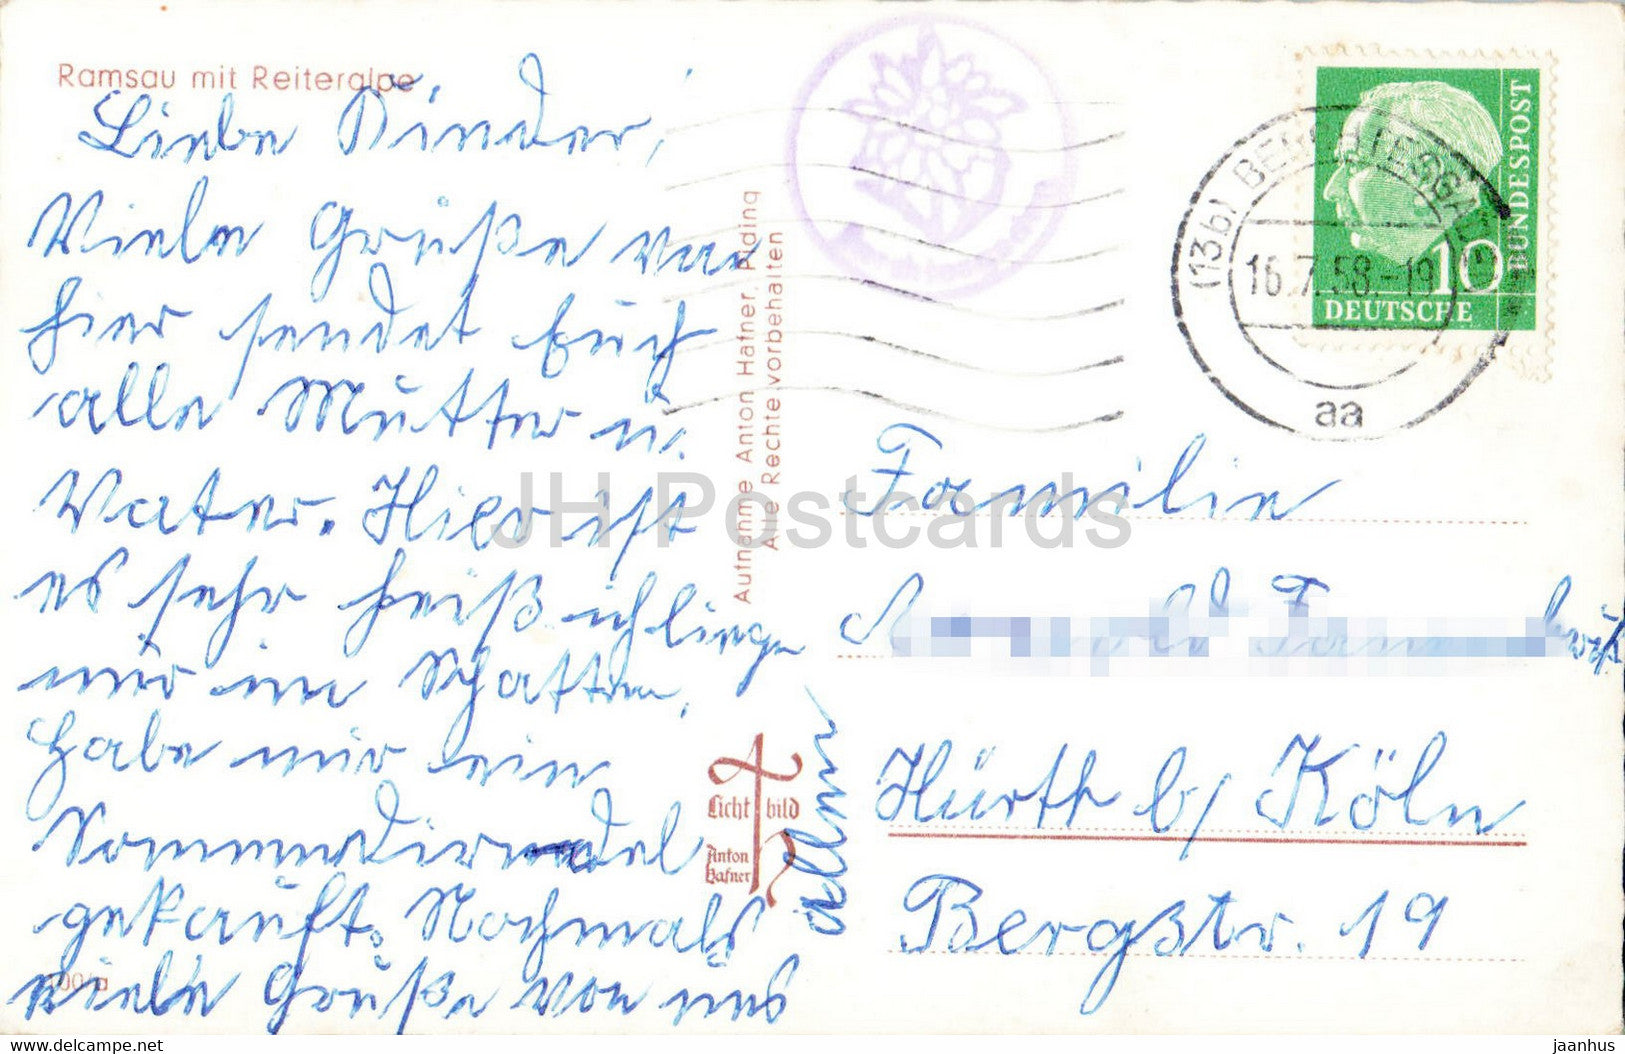 Ramsau mit Reiteralpe
Liebe Kinder,
Viele Grüße von
hier sendet Euch
alle Mutter u.
Vater. Hier ist
es sehr heiß ich liege
mir im Schatten,
habe mir ein
Sommerdirndel
gekauft. Nochmals
viele Grüße von uns
allen
100/a
Aufnahme Anton Hafner, Piding
Alle Rechte vorbehalten
Licht bild
Anton
Hafner
(13b) BERCHTESGADEN
16.7.58.-19
aa
DEUTSCHE
BUNDESPOST
10
Familie
Hürth b/ Köln
Bergstr. 19
JH Postcards
delcampe.net
jaanhus